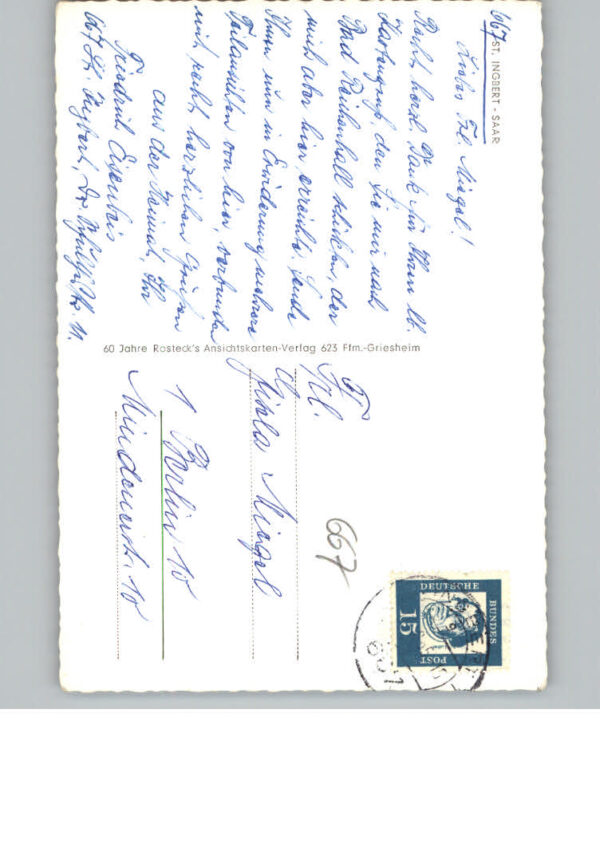 667 ST. INGBERT - SAAR
Liebes Frl. Miegel!
Recht herzl. Dank für Ihren lb.
Kartengruß, den Sie mir nach
Bad Reichenhall schickten, der
mich aber hier erreichte. Sende
Ihnen nun in Erinnerung mehrere
von hier, verbunden
mit recht herzlichen Grüßen
aus der Heimat, Ihr
Friedrich
667 St. Ingbert, Dr.
60 Jahre Rosteck's Ansichtskarten-Verlag 623 Ffm.-Griesheim
Frl.
Gisela Miegel
1 Berlin 10
Mindenerstr. 10
667
DEUTSCHE
BUNDES
POST
15